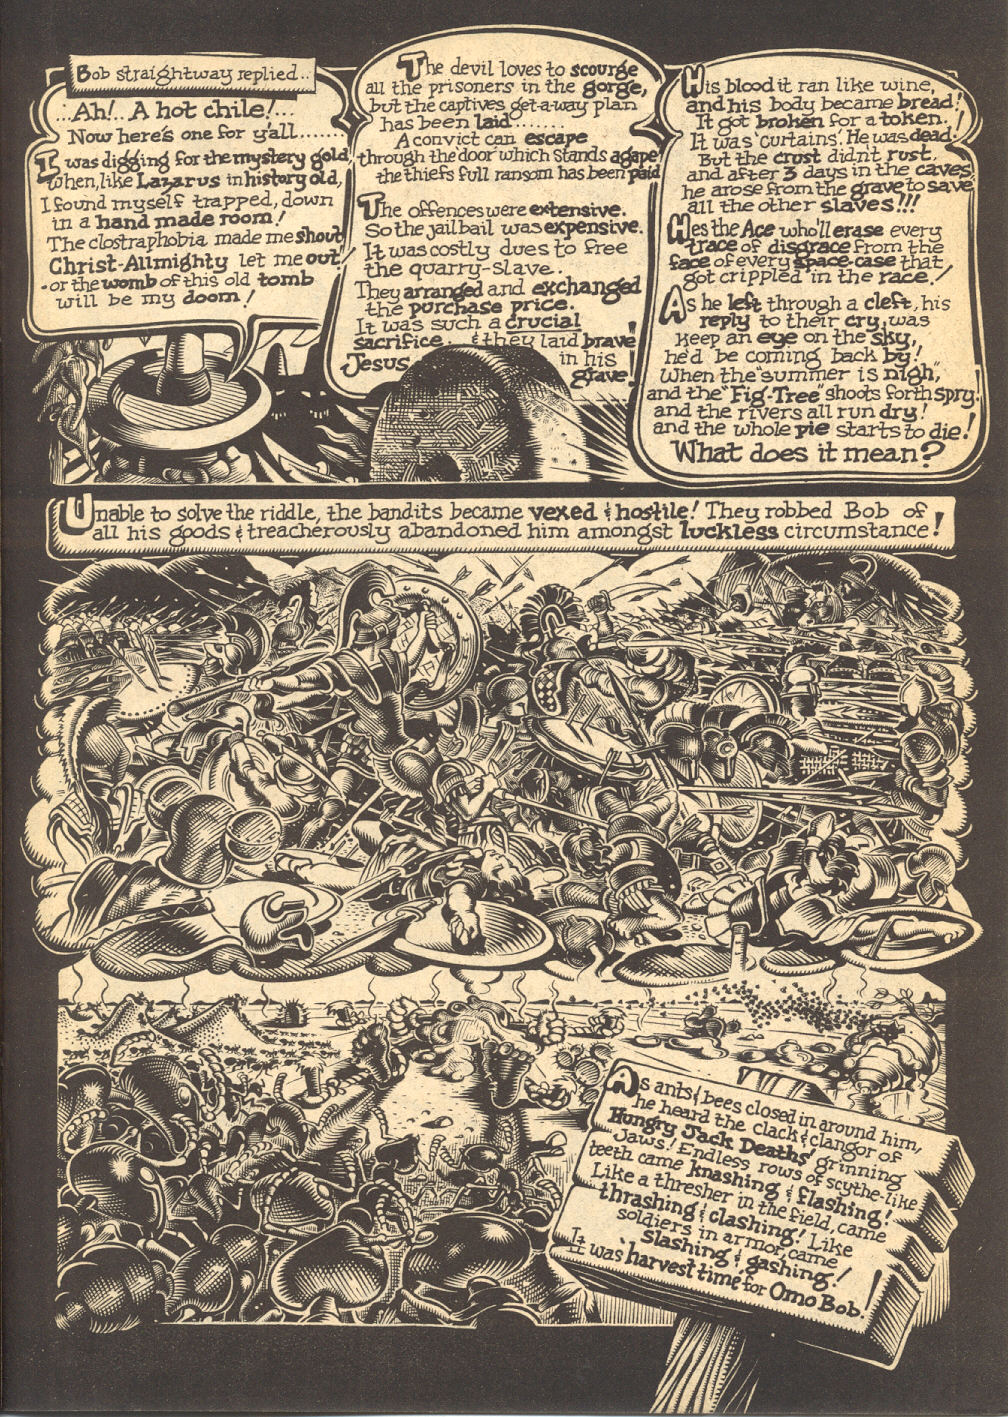 Bob straightway replied...
...Ah!.. A hot chile!...
Now here's one for y'all.......
I was digging for the mystery gold,
when, like Lazarus in history old,
I found myself trapped, down
in a hand made room!
The clostraphobia made me shout
Christ-Allmighty let me out!
-or the womb of this old tomb
will be my doom!
The devil loves to scourge
all the prisoners in the gorge,
but the captives get-a-way plan
has been laid.......
A convict can escape
through the door which stands agape,
the thiefs full ransom has been paid
The offences were extensive.
So the jailbail was expensive.
It was costly dues to free
the quarry-slave..
They arranged and exchanged
the purchase price.
It was such a crucial
sacrifice. & they laid brave
Jesus in his
grave!
His blood it ran like wine,
and his body became bread!
It got broken for a token.!
It was 'curtains'. He was dead!
But the crust didnt rust,
and after 3 days in the caves,
he arose from the grave to save
all the other slaves!!!
Hes the Ace who'll erase every
trace of disgrace from the
face of every space-case that
got crippled in the race!
As he left through a cleft, his
reply to their cry, was
keep an eye on the sky,
he'd be coming back by!
When the "summer is nigh,"
and the "Fig-Tree" shoots forth spry!
and the rivers all run dry!
and the whole pie starts to die!
What does it mean?
Unable to solve the riddle, the bandits became vexed & hostile! They robbed Bob of
all his goods & treacherously abandoned him amongst luckless circumstance!
As ants & bees closed in around him,
he heard the clack & clangor of
Hungry Jack Deaths' grinning
jaws! Endless rows of scythe-like
teeth came knashing & flashing!
Like a thresher in the field, came
thrashing & clashing! Like
soldiers in armor, came
slashing & gashing!
It was 'harvest time for Omo Bob!